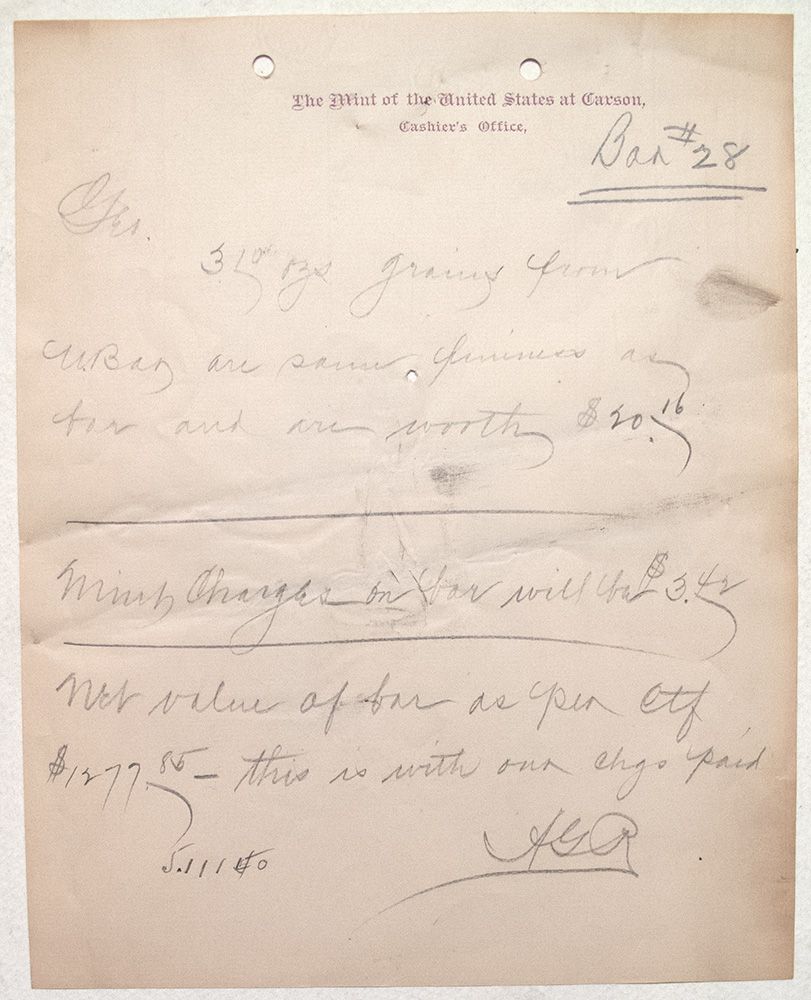 The Mint of the United States at Carson,
Cashier's Office,
Bar # 28
Geo.
ozs grains from
are same fineness as
bar and are worth $20.16
Mint Charges on bar will be $3.42
Net value of bar as per Ctf
$1277.85 – this is with our chgs paid
AGR